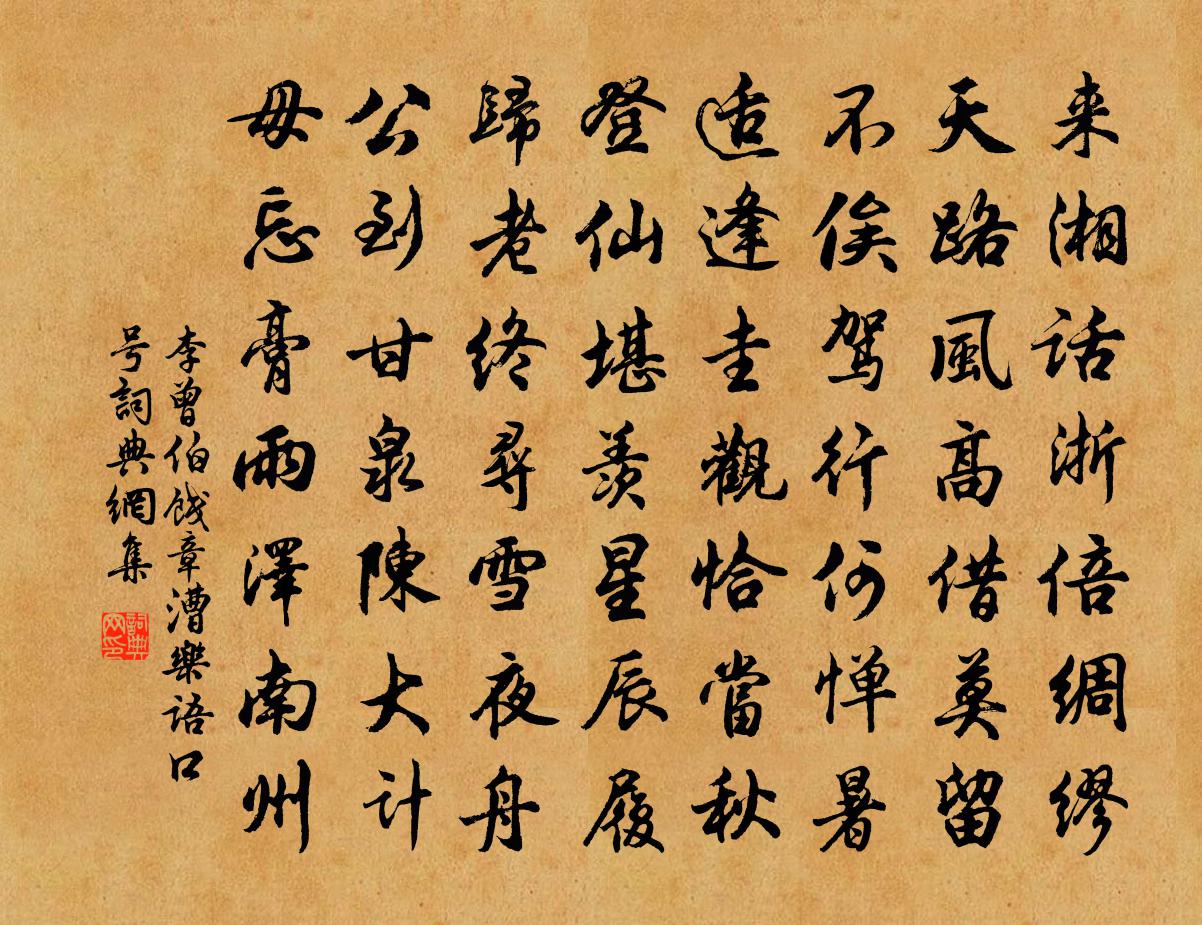 来湘話浙倍綢繆
天路風高借莫留
不俟駕行何惮暑
适逢圭觀恰當秋
登仙堪羨星辰履
歸老终尋雪夜舟
公到甘泉陳大计
毋忘膏雨澤南州
李曾伯餞章漕樂語口
号詞典網集
詞典网印